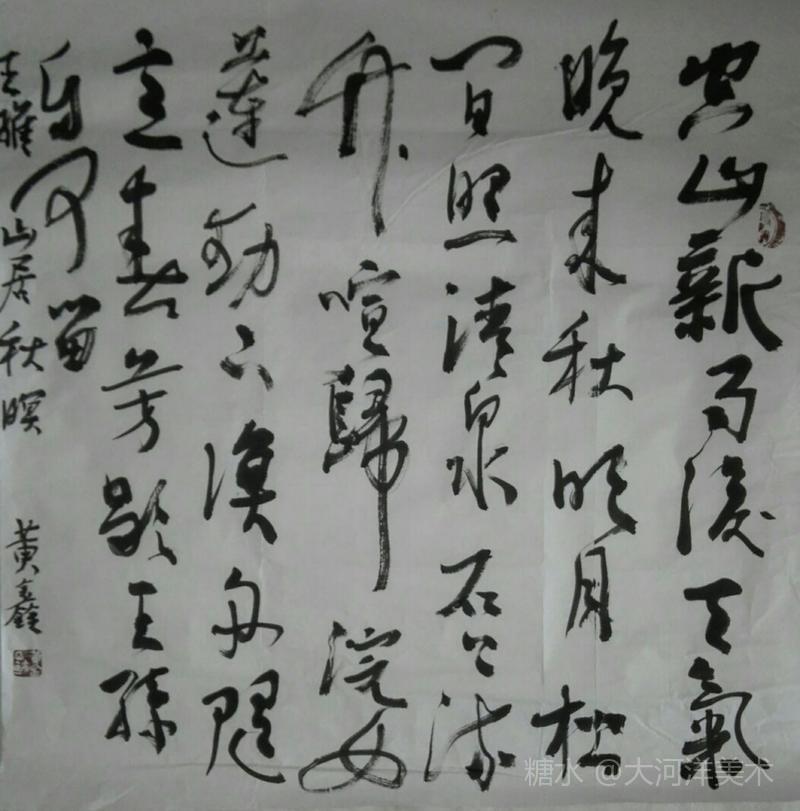 空山新雨後天氣
晚来秋明月松
间照清泉石上流
竹喧歸浣女
蓮動下漁舟随
意春芳歇王孫
自可留
王維 山居秋暝 黄鑫
糖水 @大河洋美术